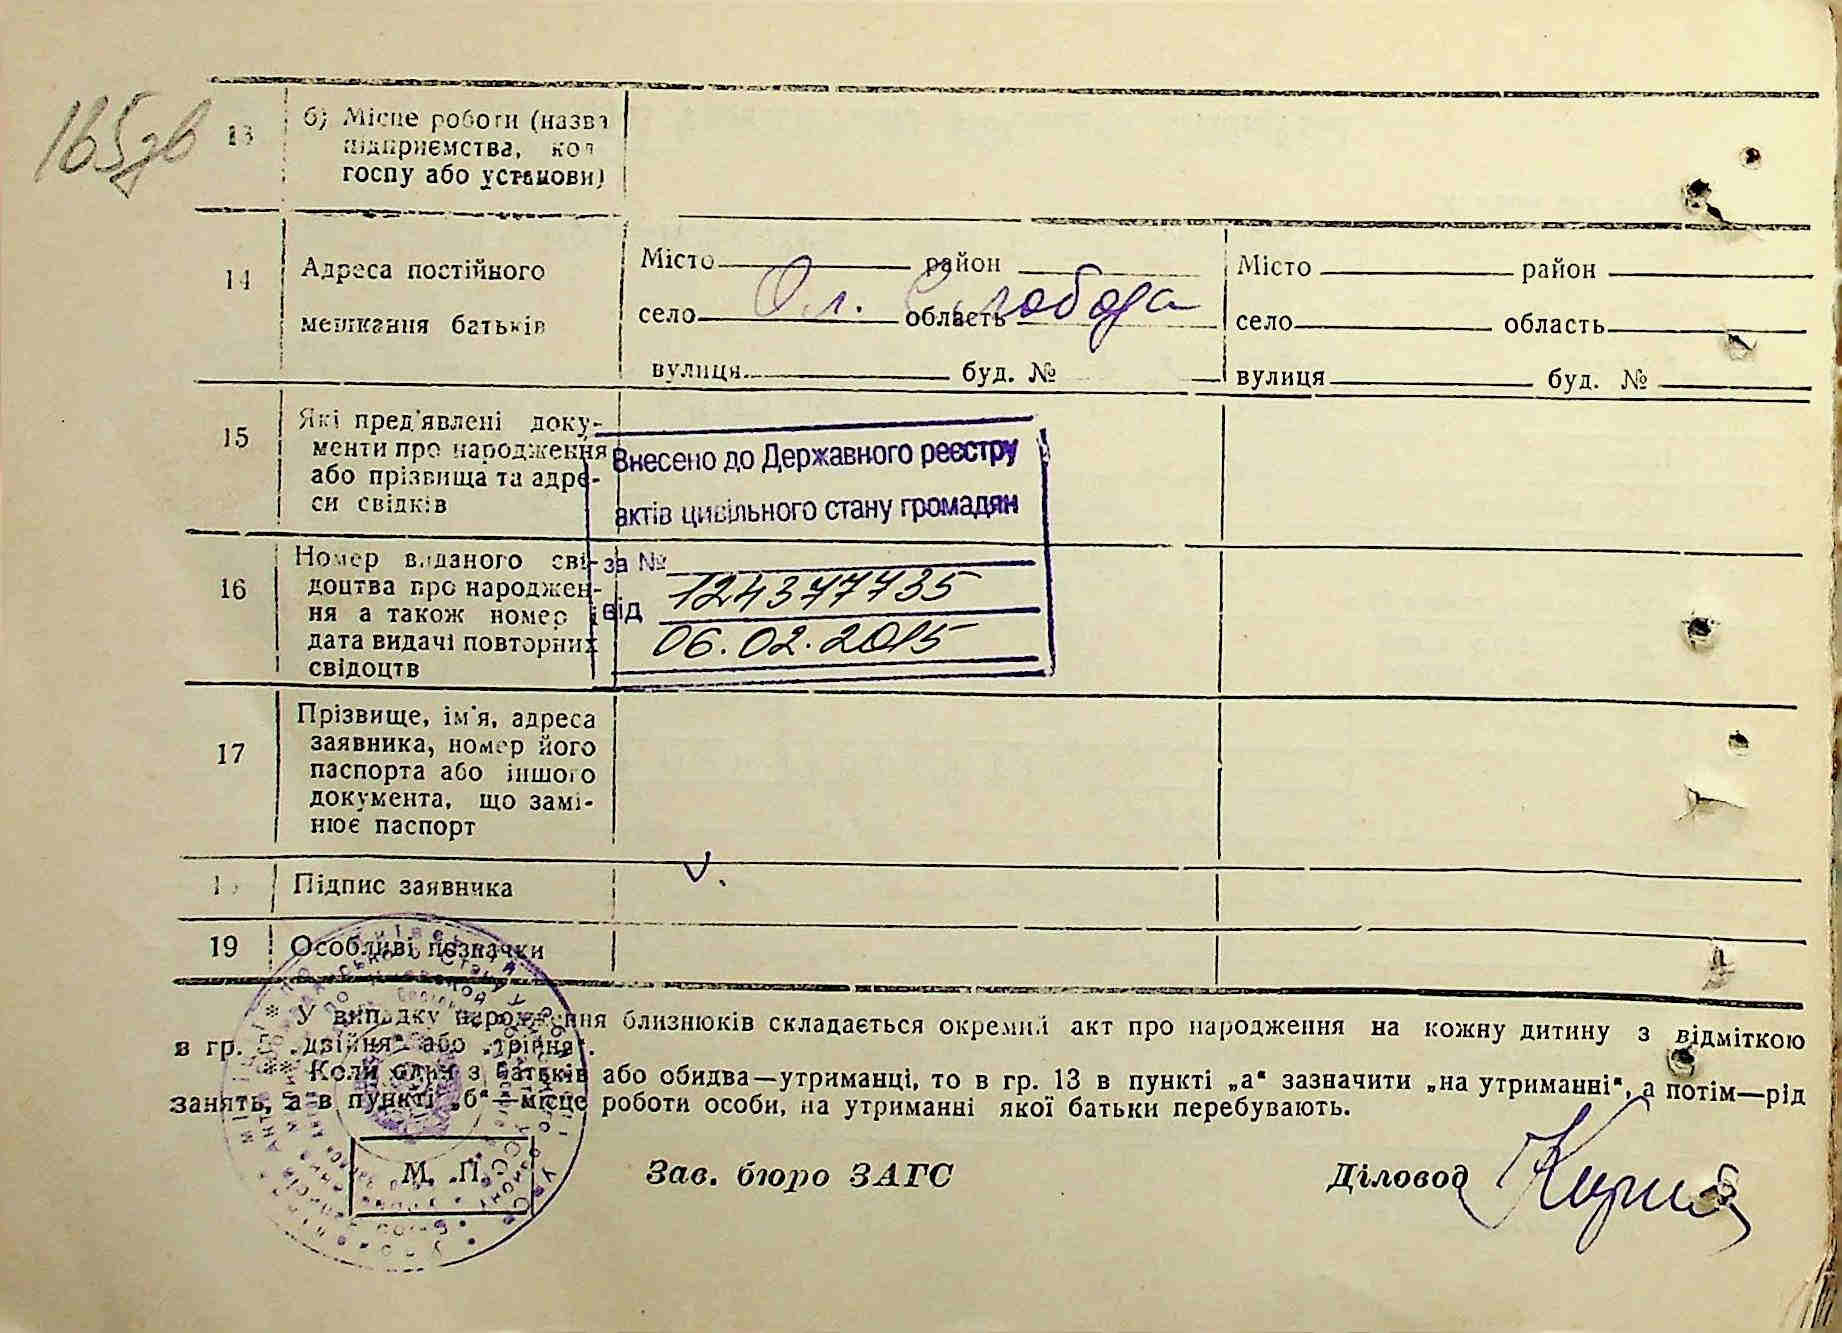 165зв
13 б) Місце роботи (назва
підприємства, кол
госпу або установи)
14 Адреса постійного
мешкання батьків
Місто район
село Ол. Слобода область
вулиця буд. №
Місто район
село область
вулиця буд. №
15 Які пред'явлені доку-
менти про народження
або прізвища та адре-
си свідків
Внесено до Державного реєстру
актів цивільного стану громадян
за №
12437735
від
06.02.2015
16 Номер виданого сві-
доцтва про народжен-
ня а також номер і
дата видачі повторних
свідоцтв
17 Прізвище, ім'я, адреса
заявника, номер його
паспорта або іншого
документа, що замі-
нює паспорт
Підпис заявника
19 Особливі позначки
* У випадку народження близнюків складається окремий акт про народження на кожну дитину з відміткою
в гр. 5 „двійня" або „трійня".
** Коли один з батьків або обидва—утриманці, то в гр. 13 в пункті „а" зазначити „на утриманні", а потім—рід
занять, а в пункті „б"—місце роботи особи, на утриманні якої батьки перебувають.
М. П. Зав. бюро ЗАГС Діловод